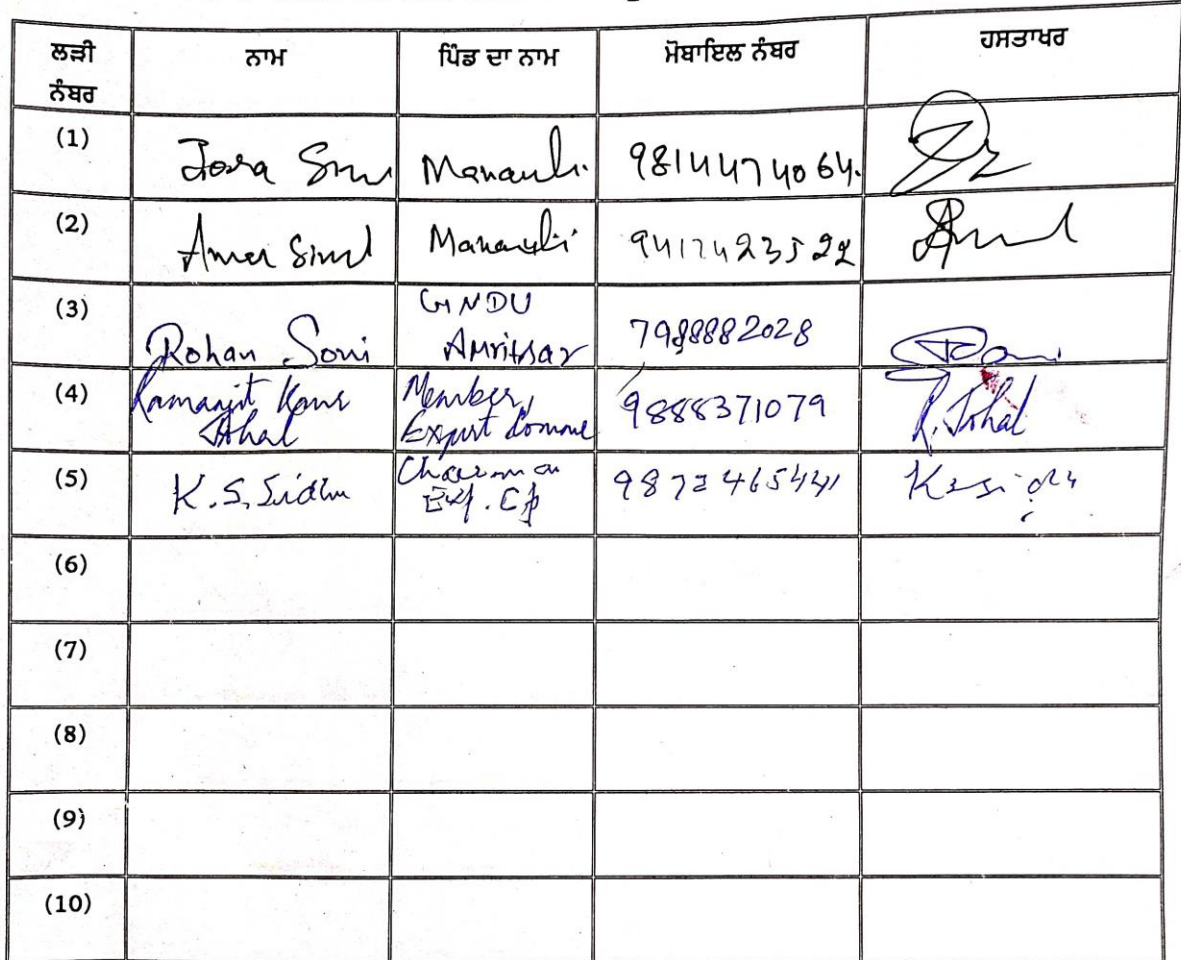 ਲੜੀ ਨੰਬਰ ਨਾਮ ਪਿੰਡ ਦਾ ਨਾਮ ਮੋਬਾਇਲ ਨੰਬਰ ਹਸਤਾਖਰ
(1) Manauli. 9814474064.
(2) Manauli 9417423522
(3) Rohan Soni GNDU Amritsar 7988882028
(4) Ramanjit Kaur Johal Member, Expert 9888371079 R. Johal
(5) K.S. Sidhu Chairman 9872465441
(6)
(7)
(8)
(9)
(10)